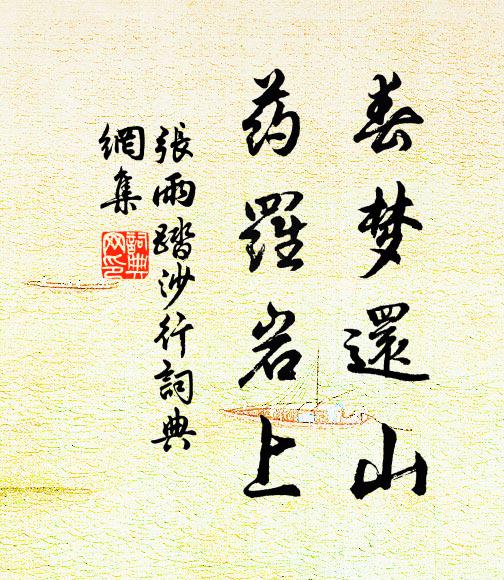 春梦還山
药羅岩上
張雨踏沙行詞典
網集
詞典
网印